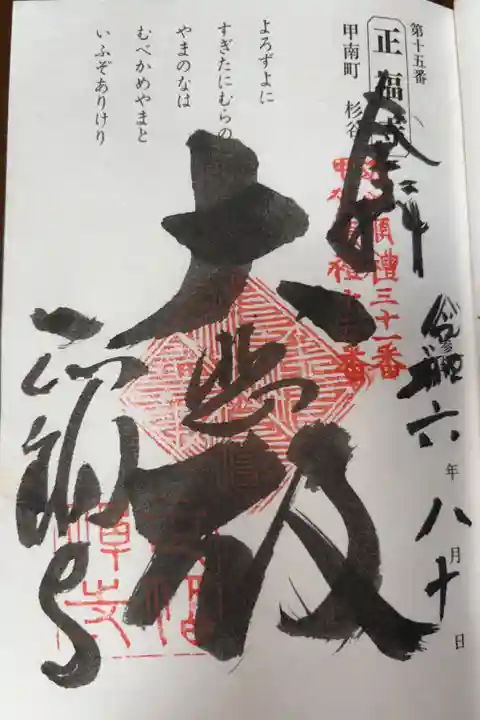 第十五番
正福寺
甲南町 杉谷
よろずよに
すぎたにむらの
やまのなは
むべかめやまと
いふぞありけり
奉拝
大悲殿
正福寺
令和六年八月十日
三十一番